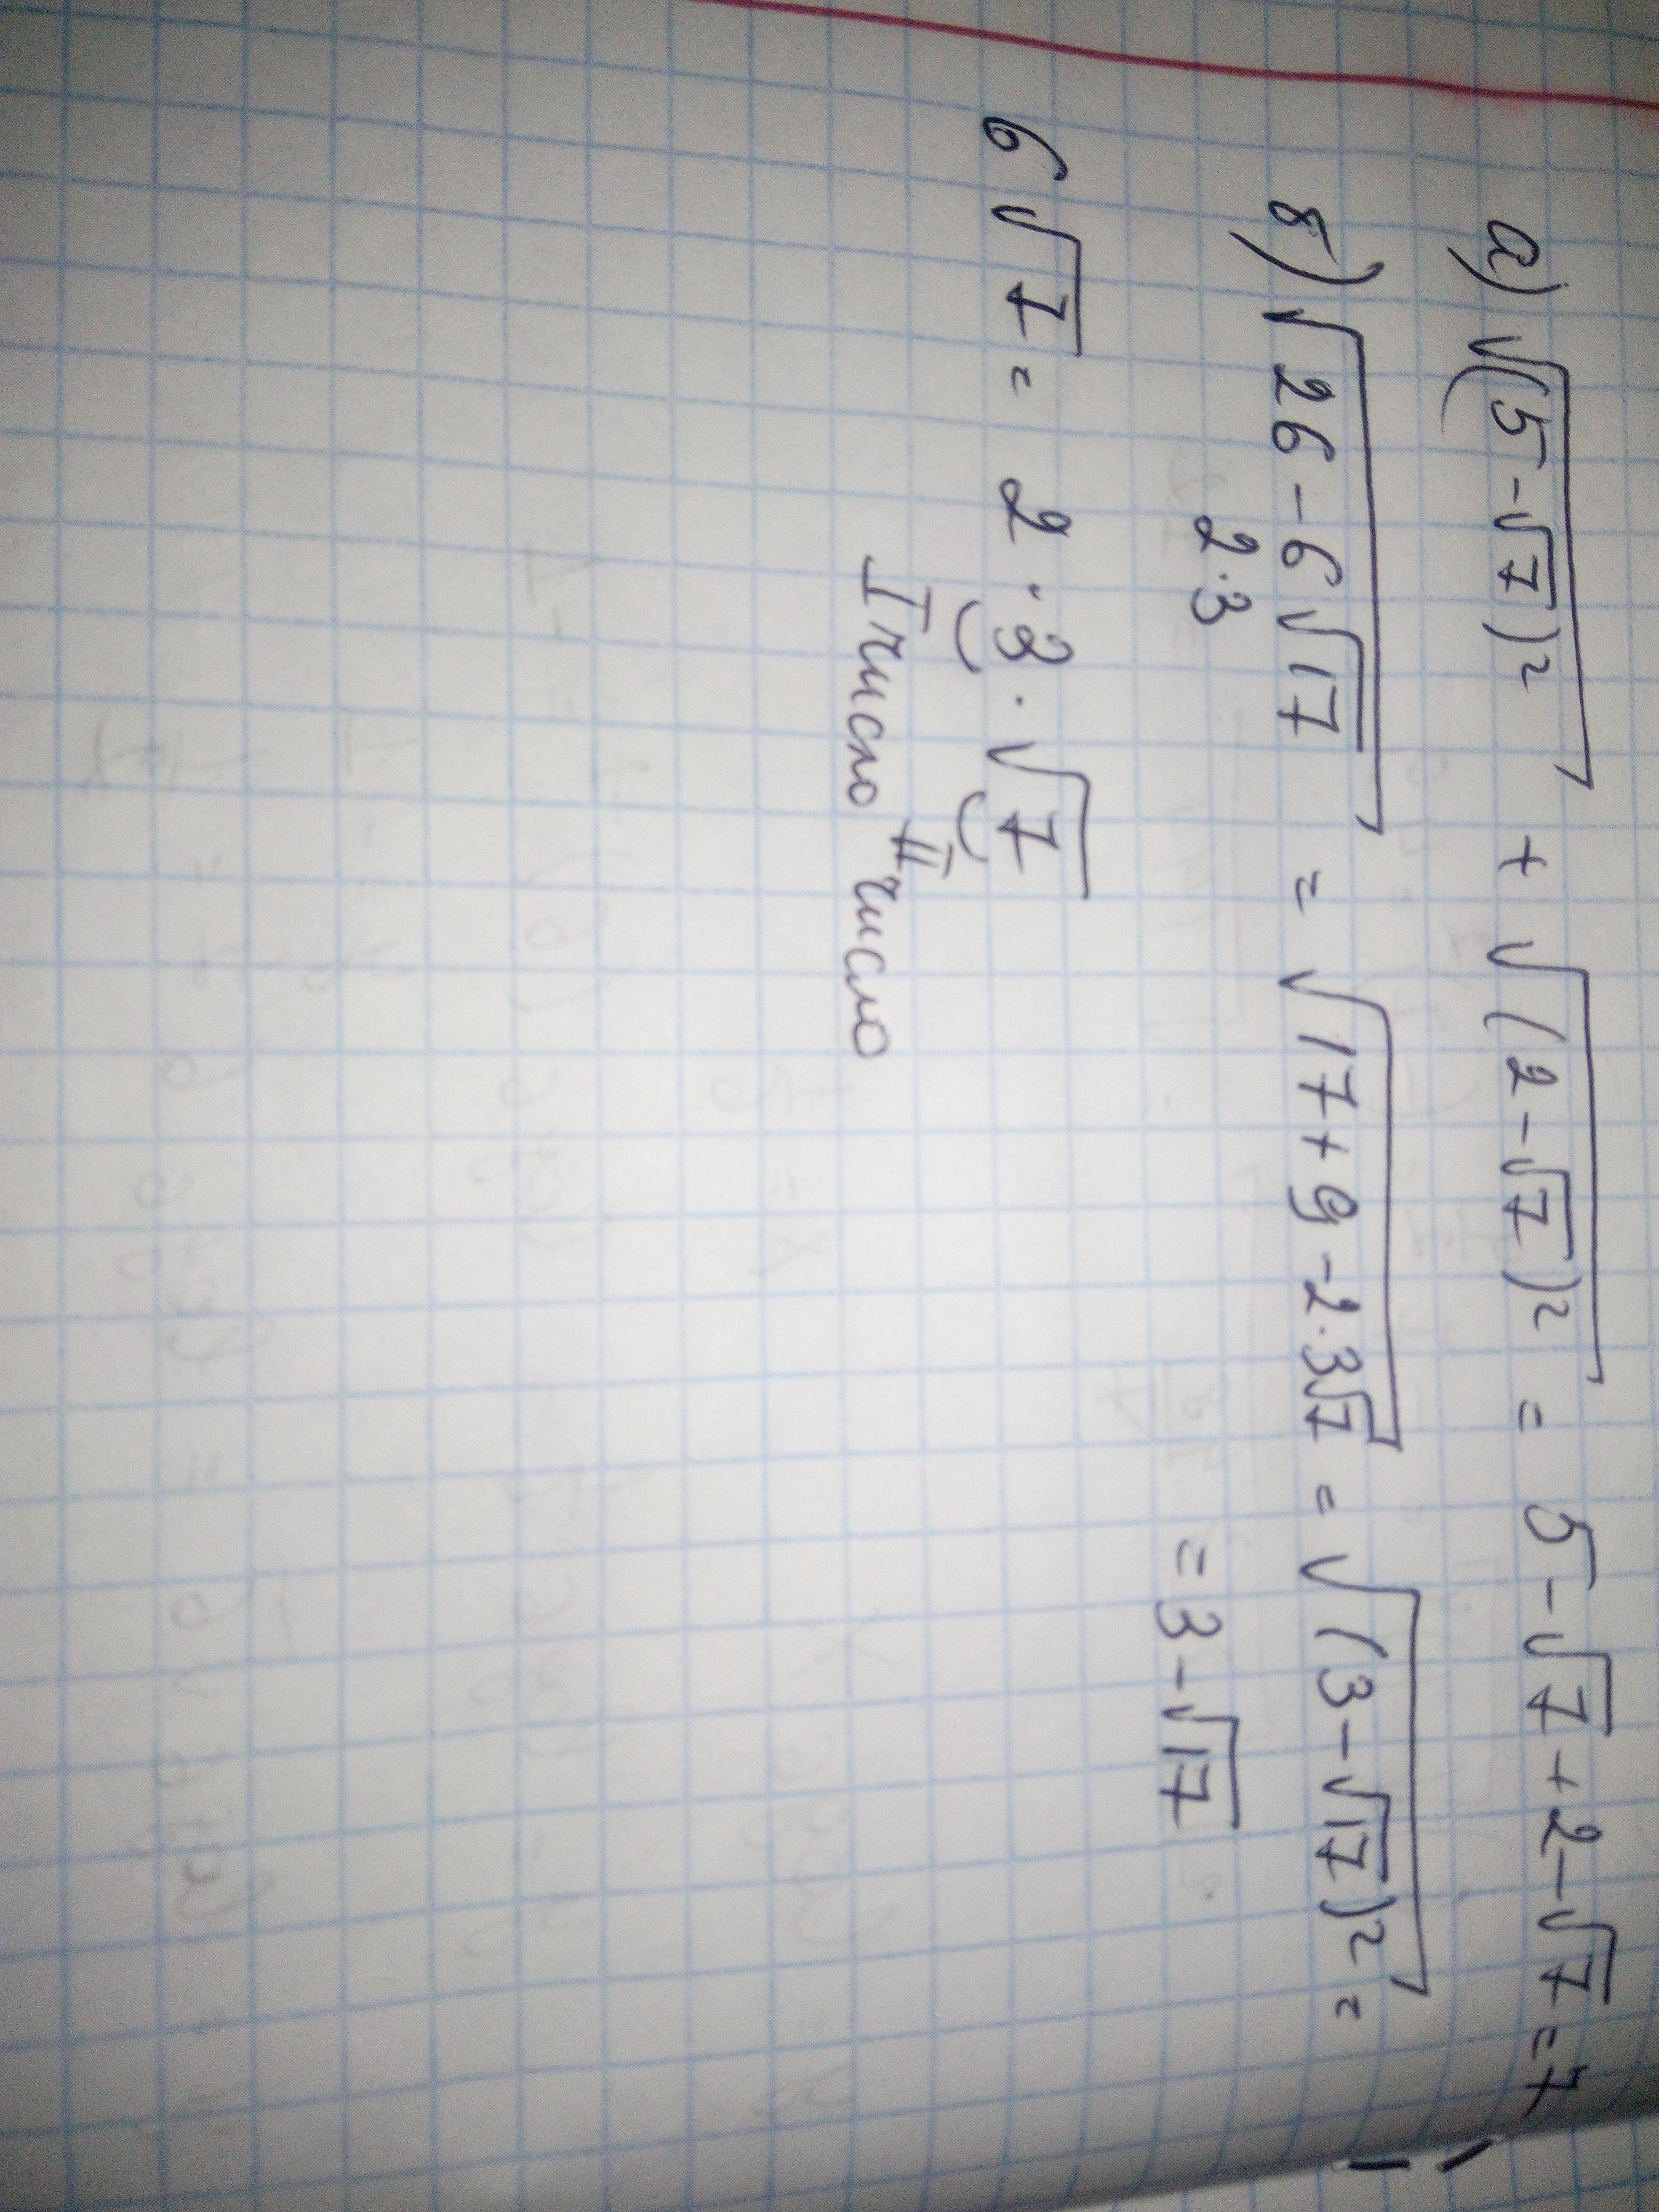 а) √(5-√7)² + √(2-√7)² = 5-√7+2-√7=7
б) √26-6√17 = √17+9-2·3√7 = √(3-√17)² =
2·3
= 3-√17
6√7 = 2·3·√7
I число II число